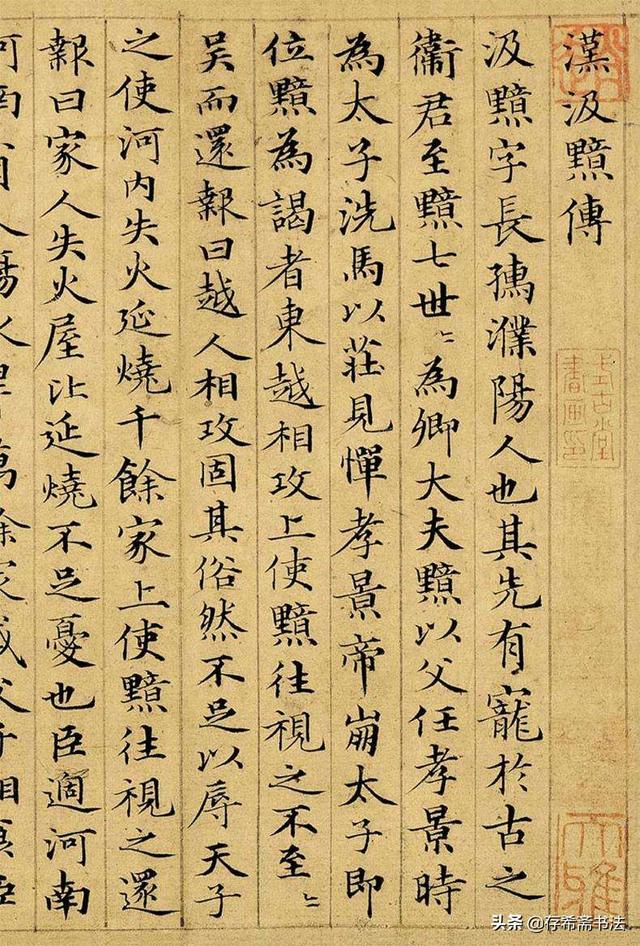 漢汲黯傳
汲黯字長孺濮陽人也其先有寵於古之
衞君至黯七世〻為卿大夫黯以父任孝景時
為太子洗馬以莊見憚孝景帝崩太子即
位黯為謁者東越相攻上使黯往視之不至〻
吳而還報曰越人相攻固其俗然不足以辱天子
之使河內失火延燒千餘家上使黯往視之還
報曰家人失火屋比延燒不足憂也臣適河南
河南人傷水旱萬餘家或父子相臣
式古堂
書画印
大雅
头条 @存希斋书法